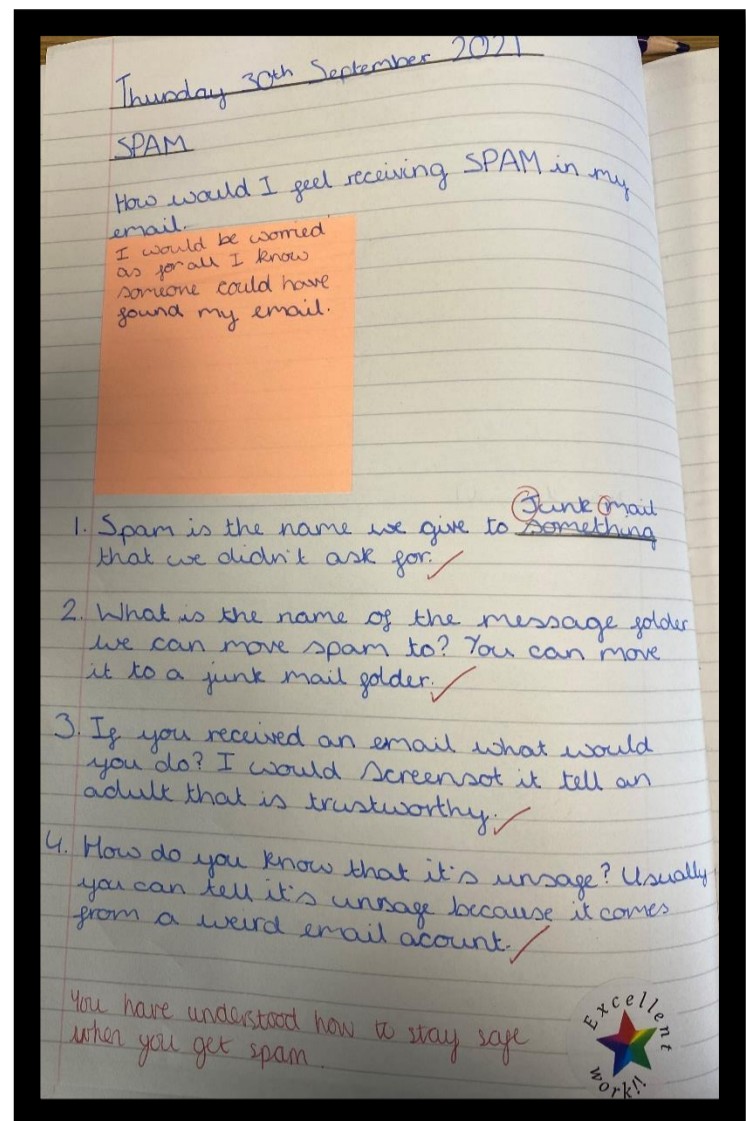 Thursday 30th September 2021
SPAM
How would I feel receiving SPAM in my
email.
I would be worried
as for all I know
someone could have
found my email.
Junk mail
1. Spam is the name we give to something
that we didn't ask for.
2. What is the name of the message folder
we can move spam to? You can move
it to a junk mail folder.
3. If you received an email what would
you do? I would screensot it tell an
adult that is trustworthy.
4. How do you know that it's unsafe? Usually
you can tell it's unsafe because it comes
from a weird email acount.
You have understood how to stay safe
when you get spam.
Excellent
work!!